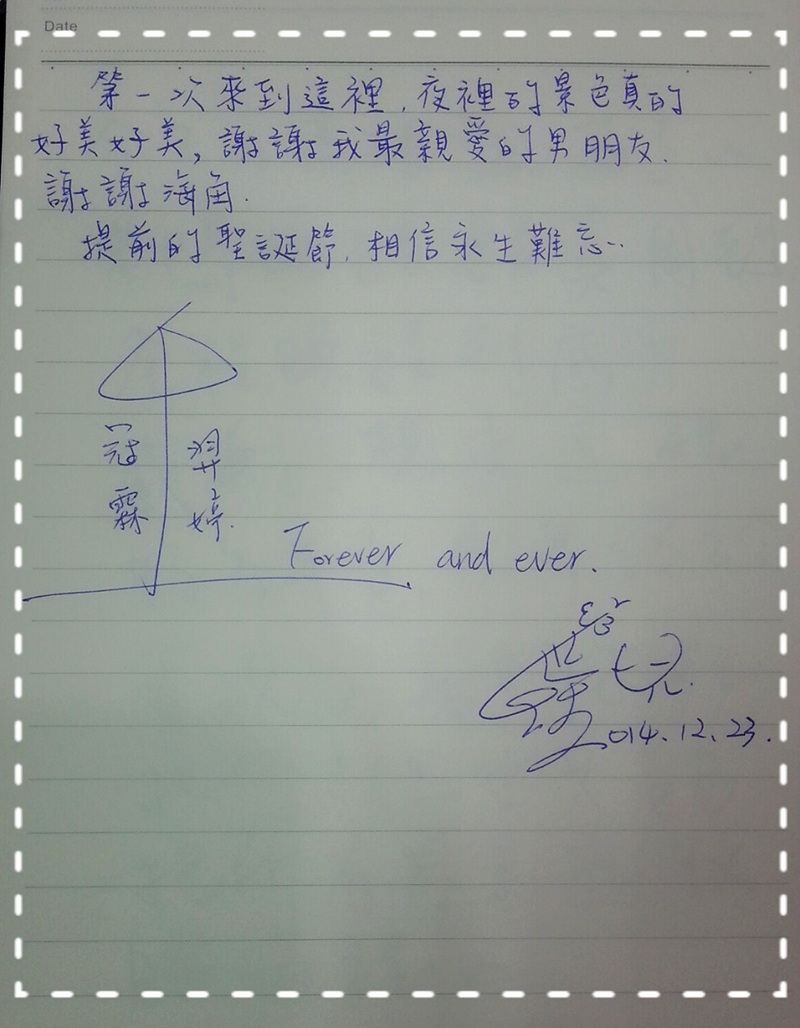 Date
第一次來到這裡，夜裡的景色真的
好美好美，謝謝我最親愛的男朋友.
謝謝海角.
提前的聖誕節，相信永生難忘..
冠霖
羿婷.
Forever and ever.
2014.12.23.